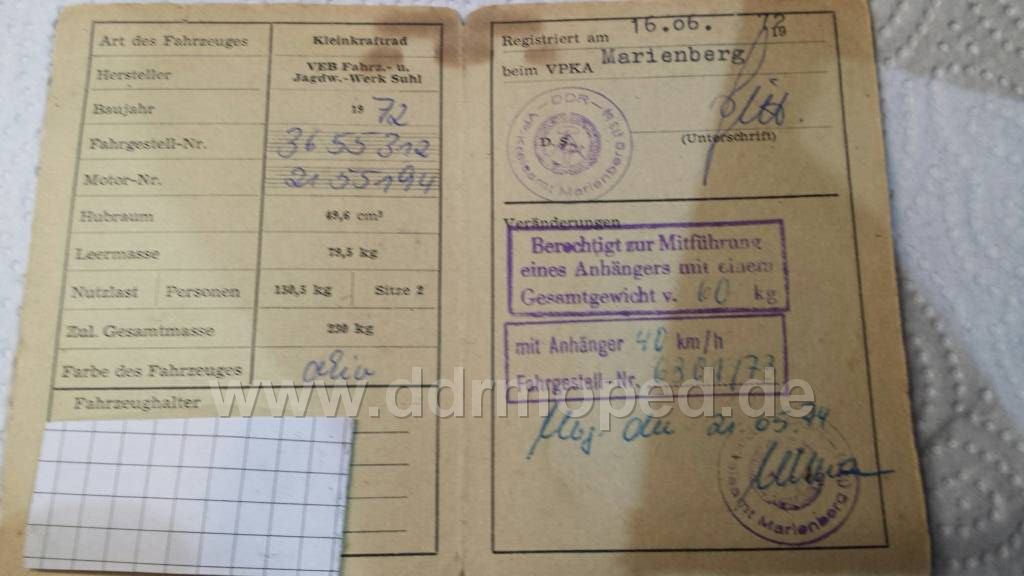 Art des Fahrzeuges Kleinkraftrad
Hersteller VEB Fahrz.- u.
Jagdw.-Werk Suhl
Baujahr 19 72
Fahrgestell-Nr. 3655312
Motor-Nr. 2155194
Hubraum 49,6 cm³
Leermasse 79,5 kg
Nutzlast Personen 150,5 kg Sitze 2
Zul. Gesamtmasse 230 kg
Farbe des Fahrzeuges oliv
Fahrzeughalter
Registriert am 16.06. 72
19
beim VPKA Marienberg
(Unterschrift)
DDR
D. S.
Marienberg
Veränderungen
Berechtigt zur Mitführung
eines Anhängers mit einem
Gesamtgewicht v. 60 kg
mit Anhänger 40 km/h
Fahrgestell-Nr. 6301/73
Mbg. den 21.05.74
Marienberg
www.ddrmoped.de